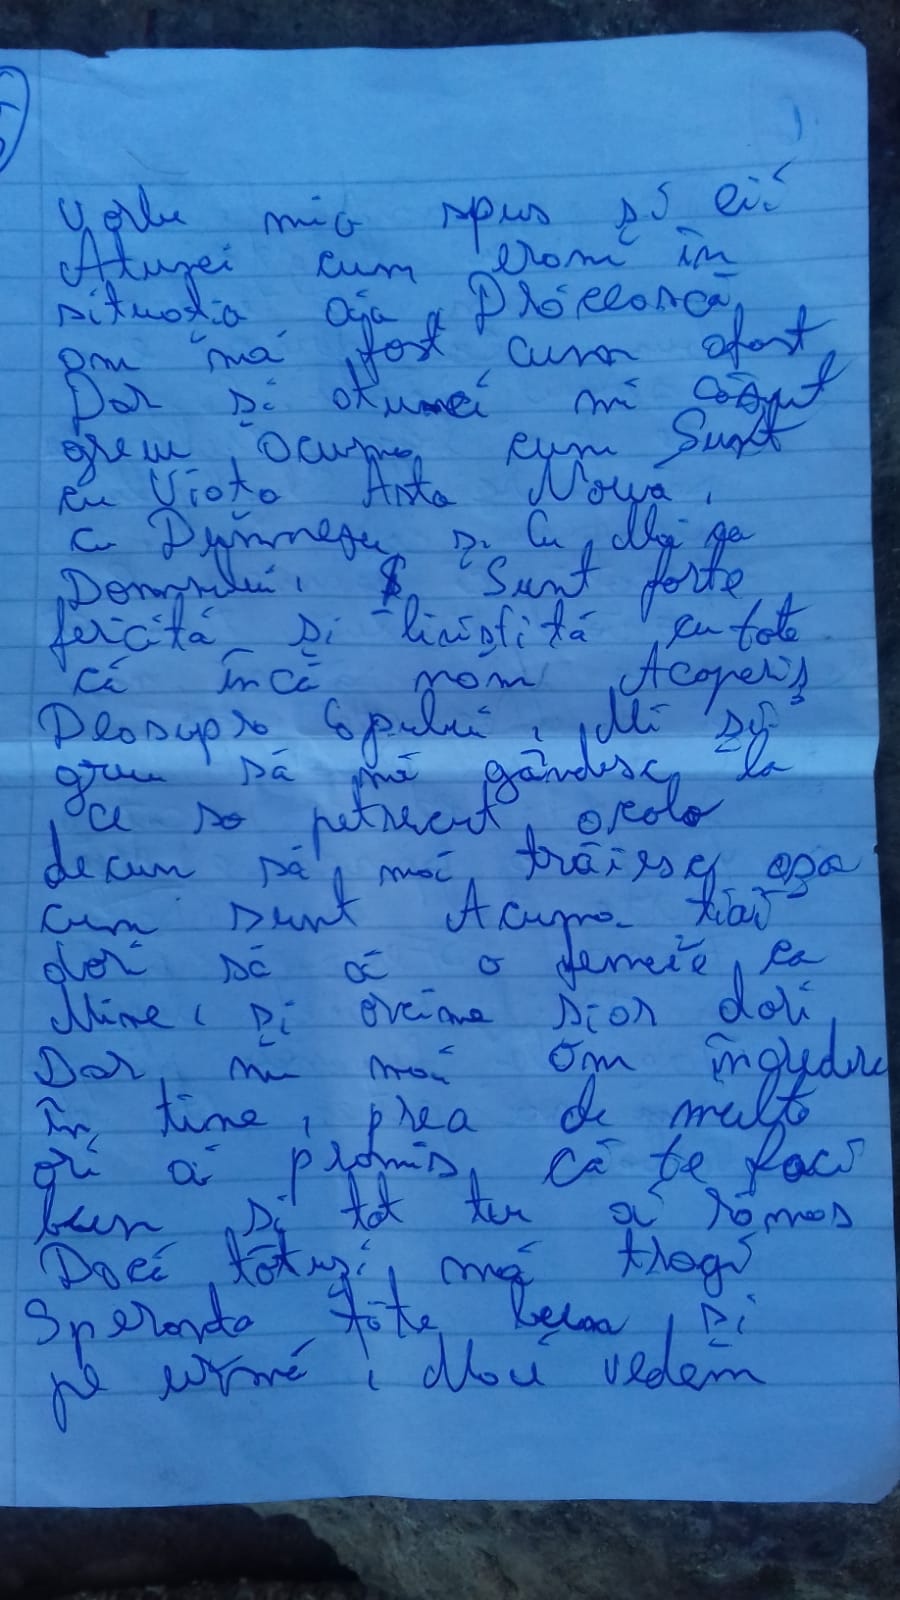 Vorbe mia spus și ei
Atunci cum eram în
situația aia Drăcească,
om mă fost cum afost
Dar și atunci mi
greu, Acuma cum Sunt
cu Viata Asta Nouă,
cu Dumnezeu și Cu Mâ na
Domnului, Sunt forte
fericită și liniștită cu tote
că încă năm Acoperiș
Deosupra Capului, Mi și
greu să mă gândesc la
ce sa petrecut, okolo
decum să mai trăiesc așa
cum sunt Acuma. tiai
dori să ai o femeie ca
Mine, și oricine siar dori
Dar nu mai am încredere
în tine, prea de multe
ori ai promis că te faci
bun și tot tu ai rămas
Dacă totuși mă tragi
Speranta tote buna și
pe urmă, Mai vedem